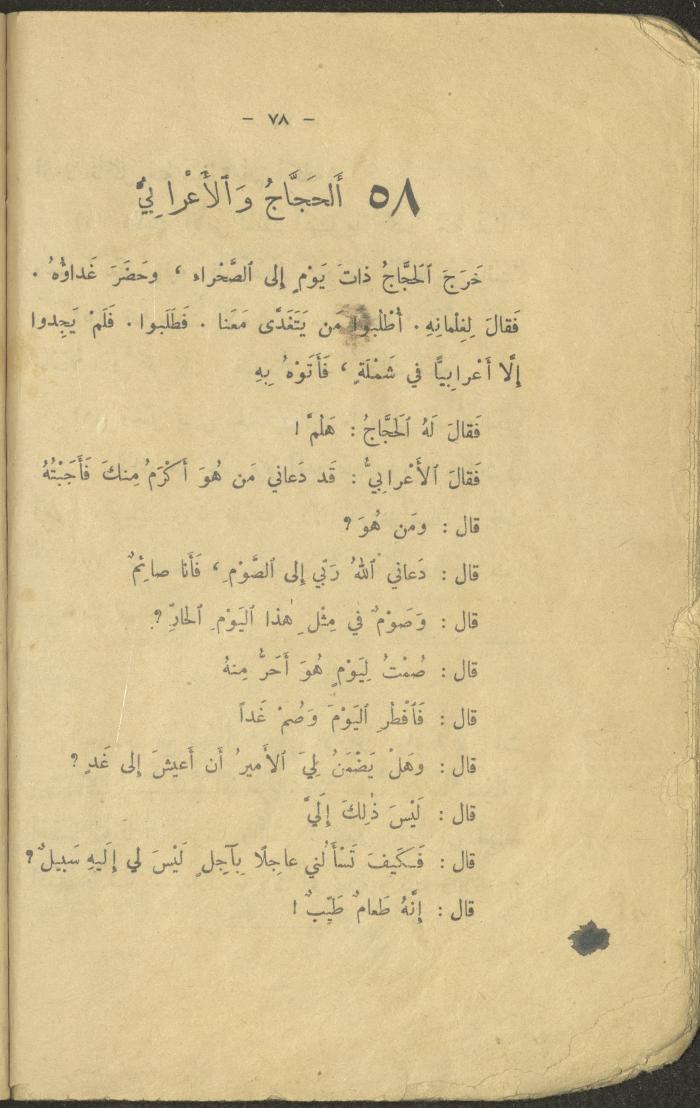 - ٧٨ -
٥٨ أَلحَجَّاجُ وَٱلأَعْرابِيُّ
خَرَجَ ٱلحَجَّاجُ ذاتَ يَوْمٍ إلى ٱلصَّحْراء ، وحَضَرَ غَداؤُهُ .
فَقالَ لِغِلْمانِهِ . أُطْلُبوا مَن يَتَغَدَّى مَعَنا . فَطَلَبوا . فَلَمْ يَجِدوا
إلَّا أَعْرابِيًّا في شَمْلَةٍ ، فَأَتَوْهُ بِهِ
فَقالَ لَهُ ٱلحَجَّاجُ : هَلُمَّ !
فَقالَ ٱلأَعْرابِيُّ : قَد دَعاني مَن هُوَ أَكْرَمُ مِنكَ فَأَجَبْتُهُ
قال : ومَن هُوَ ?
قال : دَعاني ٱللهُ رَبِّي إلى ٱلصَّوْمِ ، فَأَنا صائِمٌ
قال : وَصَوْمٌ في مِثْلِ هٰذا ٱليَوْمِ ٱلحارِّ ?
قال : صُمْتُ لِيَوْمٍ هُوَ أَحَرُّ مِنهُ
قال : فَٱفْطُرِ ٱليَوْمَ وَصُمْ غَداً
قال : وهَلْ يَضْمَنُ لِيَ ٱلأميرُ أن أعيشَ إلى غَدٍ ?
قال : لَيْسَ ذٰلِكَ إلَيَّ
قال : فَكَيفَ تَسْأَلُني عاجِلًا بِآجِلٍ لَيْسَ لي إلَيهِ سَبيلٌ ?
قال : إنَّهُ طَعامٌ طَيِّبٌ !